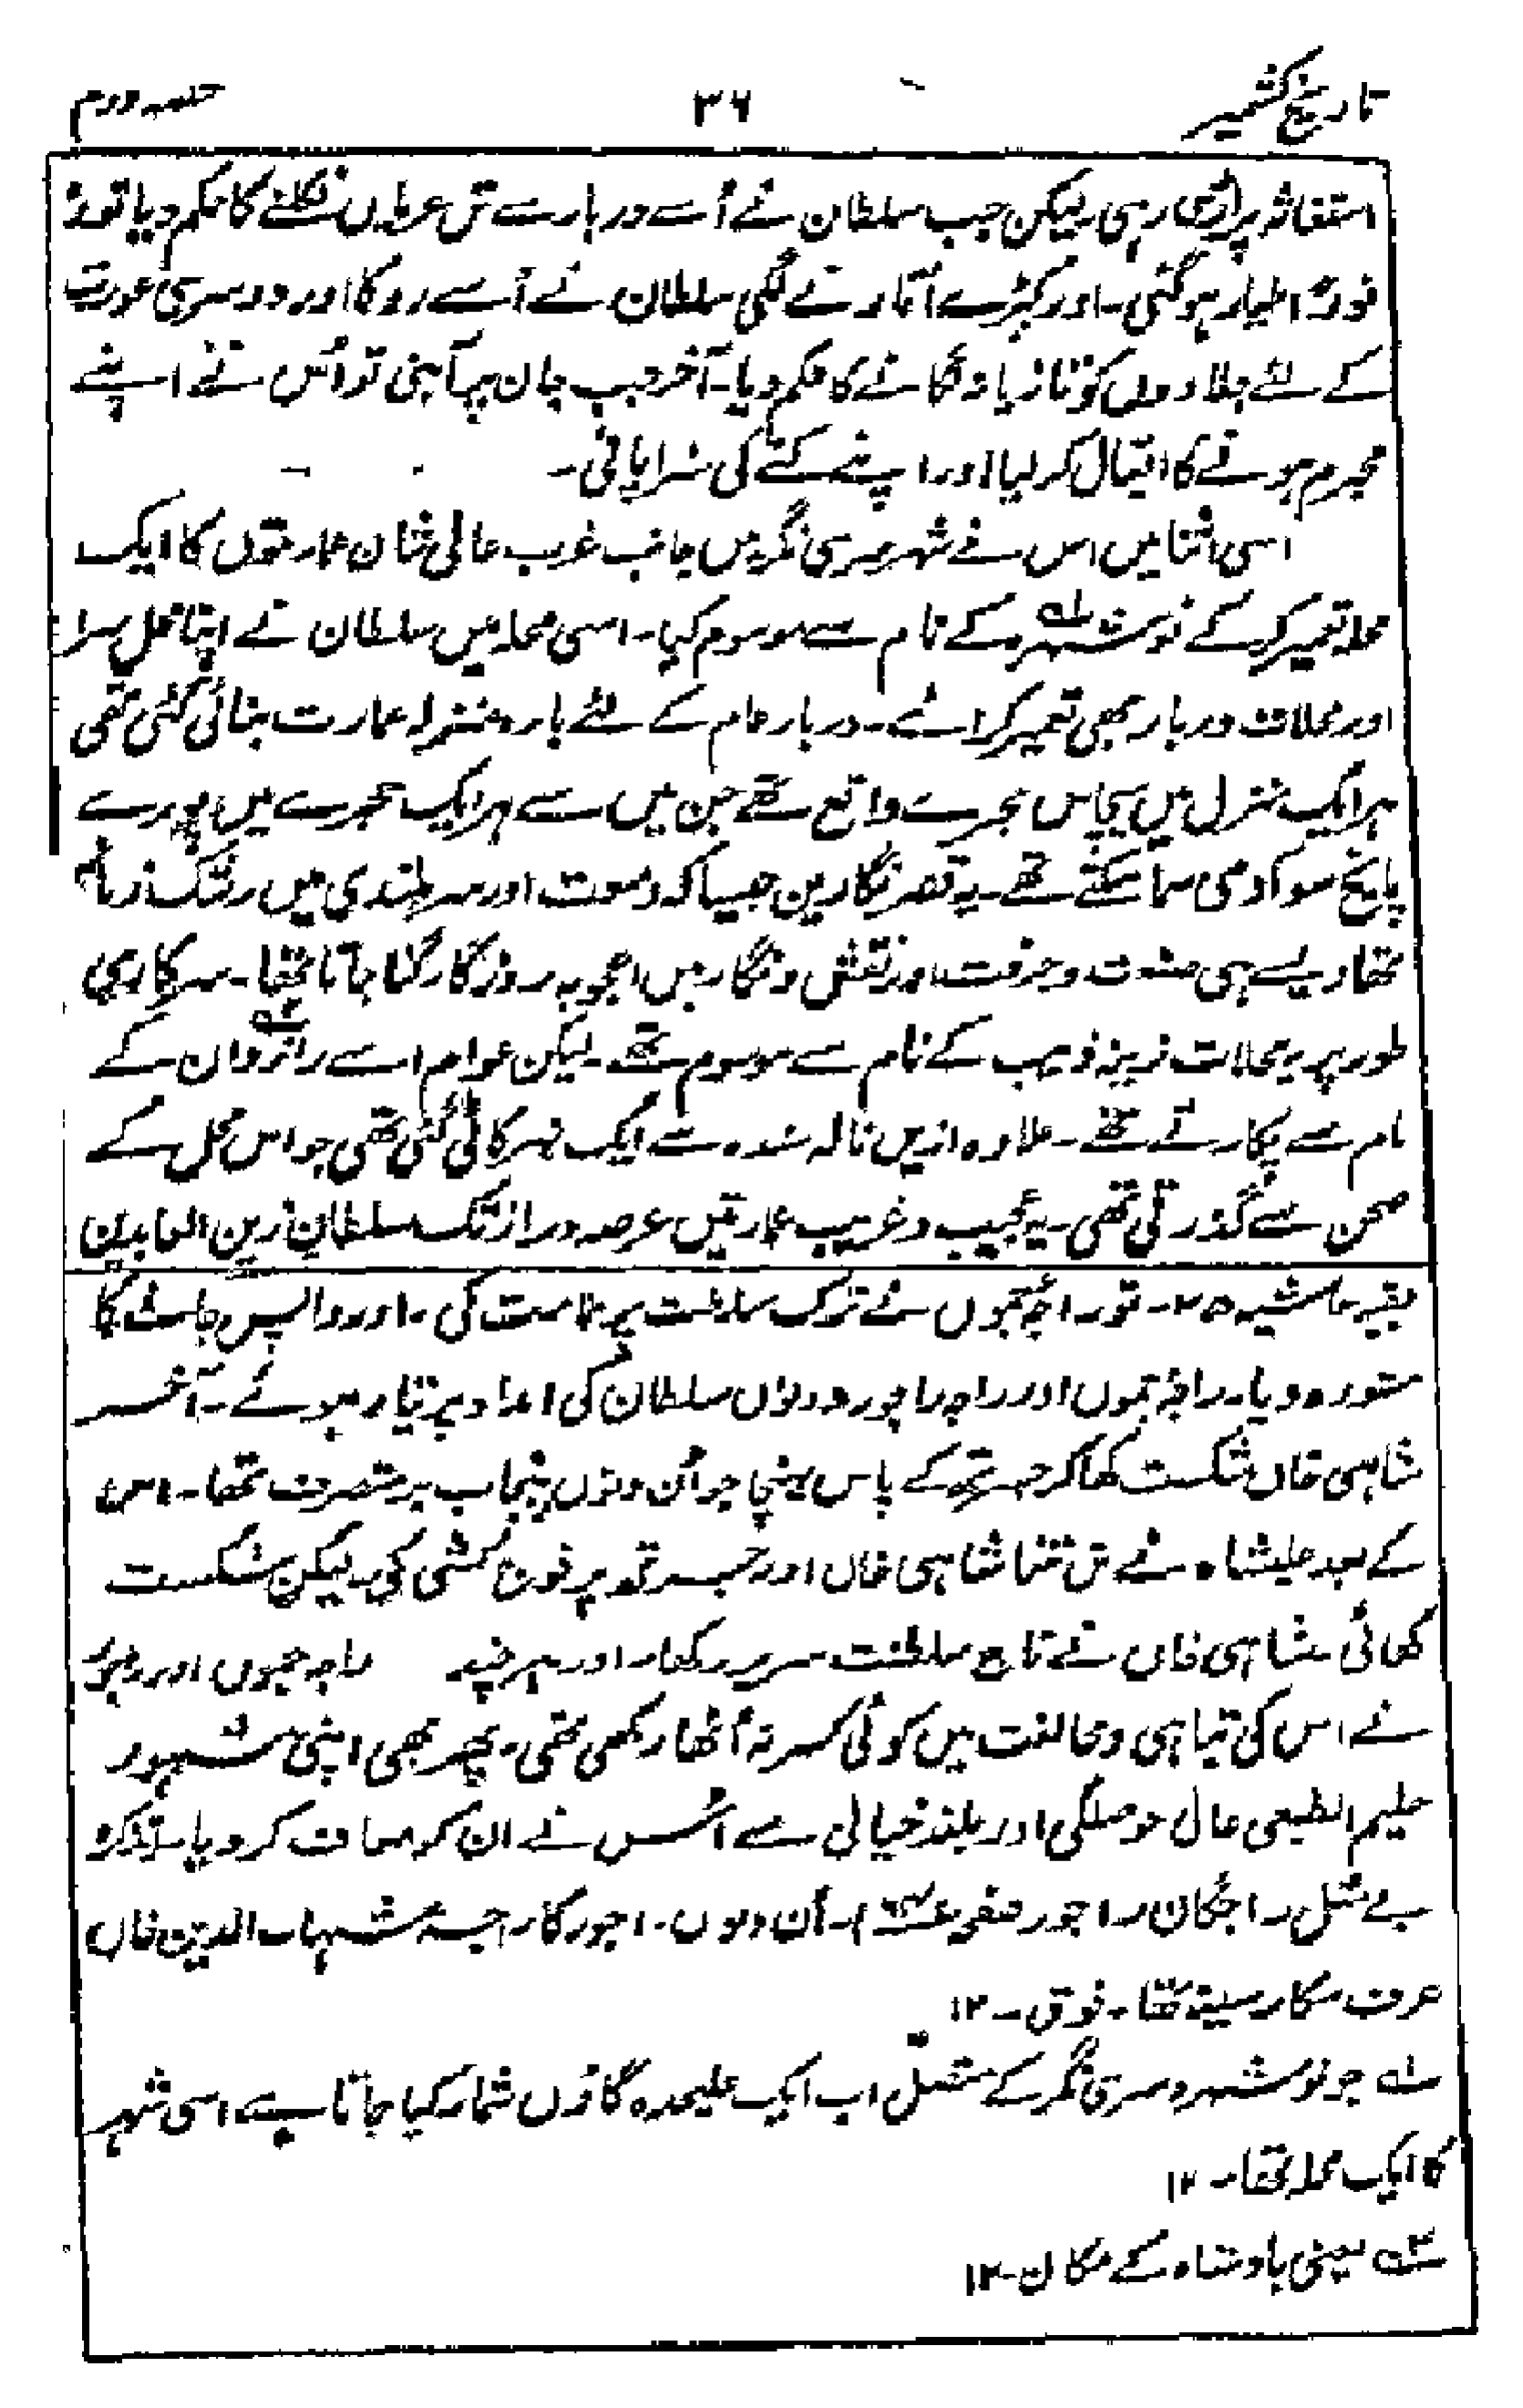 تاریخ کشمیر
۳۶
حصہ دوم
استغاثہ پر اڑی رہی لیکن جب سلطان نے اُسے دربار سے تن عریاں نکلنے کا حکم دیا تو وہ
فوراً طیار ہوگئی۔ اور کپڑے اُتارنے لگی سلطان نے اُسے روکا اور دوسری عورت
کے لئے جلادوں کو تازیانہ لگانے کا حکم دیا۔ آخر جب جان پر آبنی تو اُس نے اپنے
مجرم ہونے کا اقبال کرلیا اور اپنے کئے کی سزا پائی۔
اسی اثنا میں اس نے شہر سری نگر میں جانب غرب عالی شان عمارتوں کا ایک
محلہ تعمیر کرکے نوشہرہ کے نام سے موسوم کیا۔ اسی محلہ میں سلطان نے اپنا محل سرا
اور محلات دربار بھی تعمیر کرائے۔ دربار عام کے لئے بارہ منزلہ عمارت بنائی گئی تھی
ہر ایک منزل میں پچاس حجرے واقع تھے جن میں سے ہر ایک حجرے میں پورے
پانچ سو آدمی سما سکتے تھے۔ یہ قصر نگارین جیسا کہ وسعت اور سربلندی میں رشک زمانہ
تھا ویسے ہی صنعت و حرفت اور نقش و نگار میں اعجوبہ روزگار گنا جاتا تھا۔ سرکاری
طور پر یہ محلات زینہ ڈیب کے نام سے موسوم تھے۔ لیکن عوام اسے رازدان کے
نام سے پکارتے تھے۔ علاوہ ازیں نالہ سندہ سے ایک نہر کاٹی گئی تھی جو اس محل کے
صحن سے گذرتی تھی۔ یہ عجیب و غریب عمارتیں عرصہ دراز تک سلطان زین العابدین
بقیہ حاشیہ ۲۵۔ تو راجہ جموں نے ترک سلطنت پر ملامت کی۔ اور واپس جانے کا
مشورہ دیا۔ راجہ جموں اور راجہ راجور دونوں سلطان کی امداد پر تیار ہوئے۔ آخر
شاہی خاں شکست کھا کر جسرتھ کے پاس پہنچا جو اُن دنوں پنجاب پر متصرف تھا۔ اس
کے بعد علیشاہ نے تن تنہا شاہی خاں اور جسرتھ پر فوج کشی کی۔ لیکن شکست
کھائی شاہی خاں نے تاج سلطنت سر پر رکھا۔ اور ہر چند راجہ جموں اور راجور
نے اس کی تباہی و مخالفت میں کوئی کسر نہ اُٹھا رکھی تھی۔ پھر بھی اپنی مشہور
حلیم الطبعی عالی حوصلگی اور بلند خیالی سے اُس نے ان کو معاف کر دیا۔ تذکرہ
بے مثل راجگان راجور صفحہ اُن دنوں راجور کا راجہ شہاب الدین خاں
عرف سکار سینہ تھا۔ فوق۔ ۱۲
لہ جو نوشہرہ سری نگر کے متصل اب ایک علیحدہ گاؤں شمار کیا جاتا ہے اسی شہر
کا ایک محلہ تھا۔ ۱۲
لہ یعنی بادشاہ کے مکان۔ ۱۲